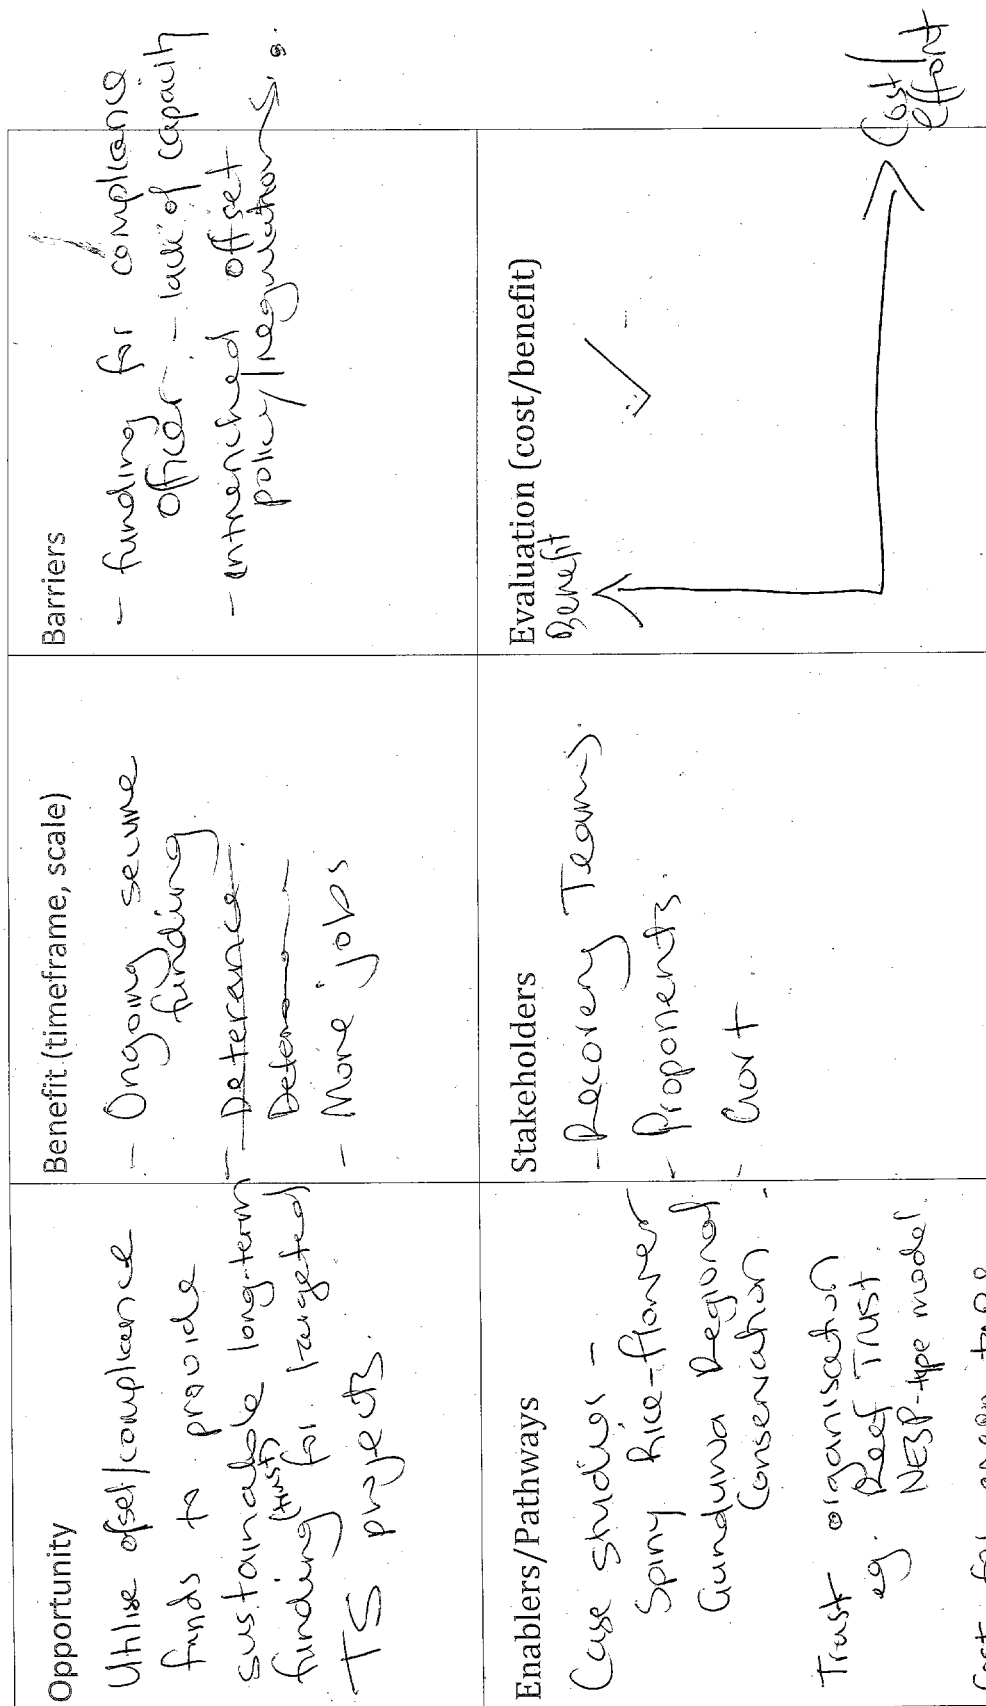 Opportunity
Utilise ofset/compliance
funds to provide
sustainable long-term
(trust)
funding for targeted
TS projects.
Benefit (timeframe, scale)
- Ongoing secure
funding
- Deterance
- More jobs
Barriers
- funding for compliance
officer - lack of capacity
- entrenched offset
policy/regulation
Enablers/Pathways
Case studies -
Spiny Rice-flower
Gunduwa Regional
Conservation
Trust organisation
eg. Reef Trust
NESP-type model.
Cost for green tape
Stakeholders
- Recovery Teams.
- Proponents.
- Govt
Evaluation (cost/benefit)
Benefit
Cost/
effort